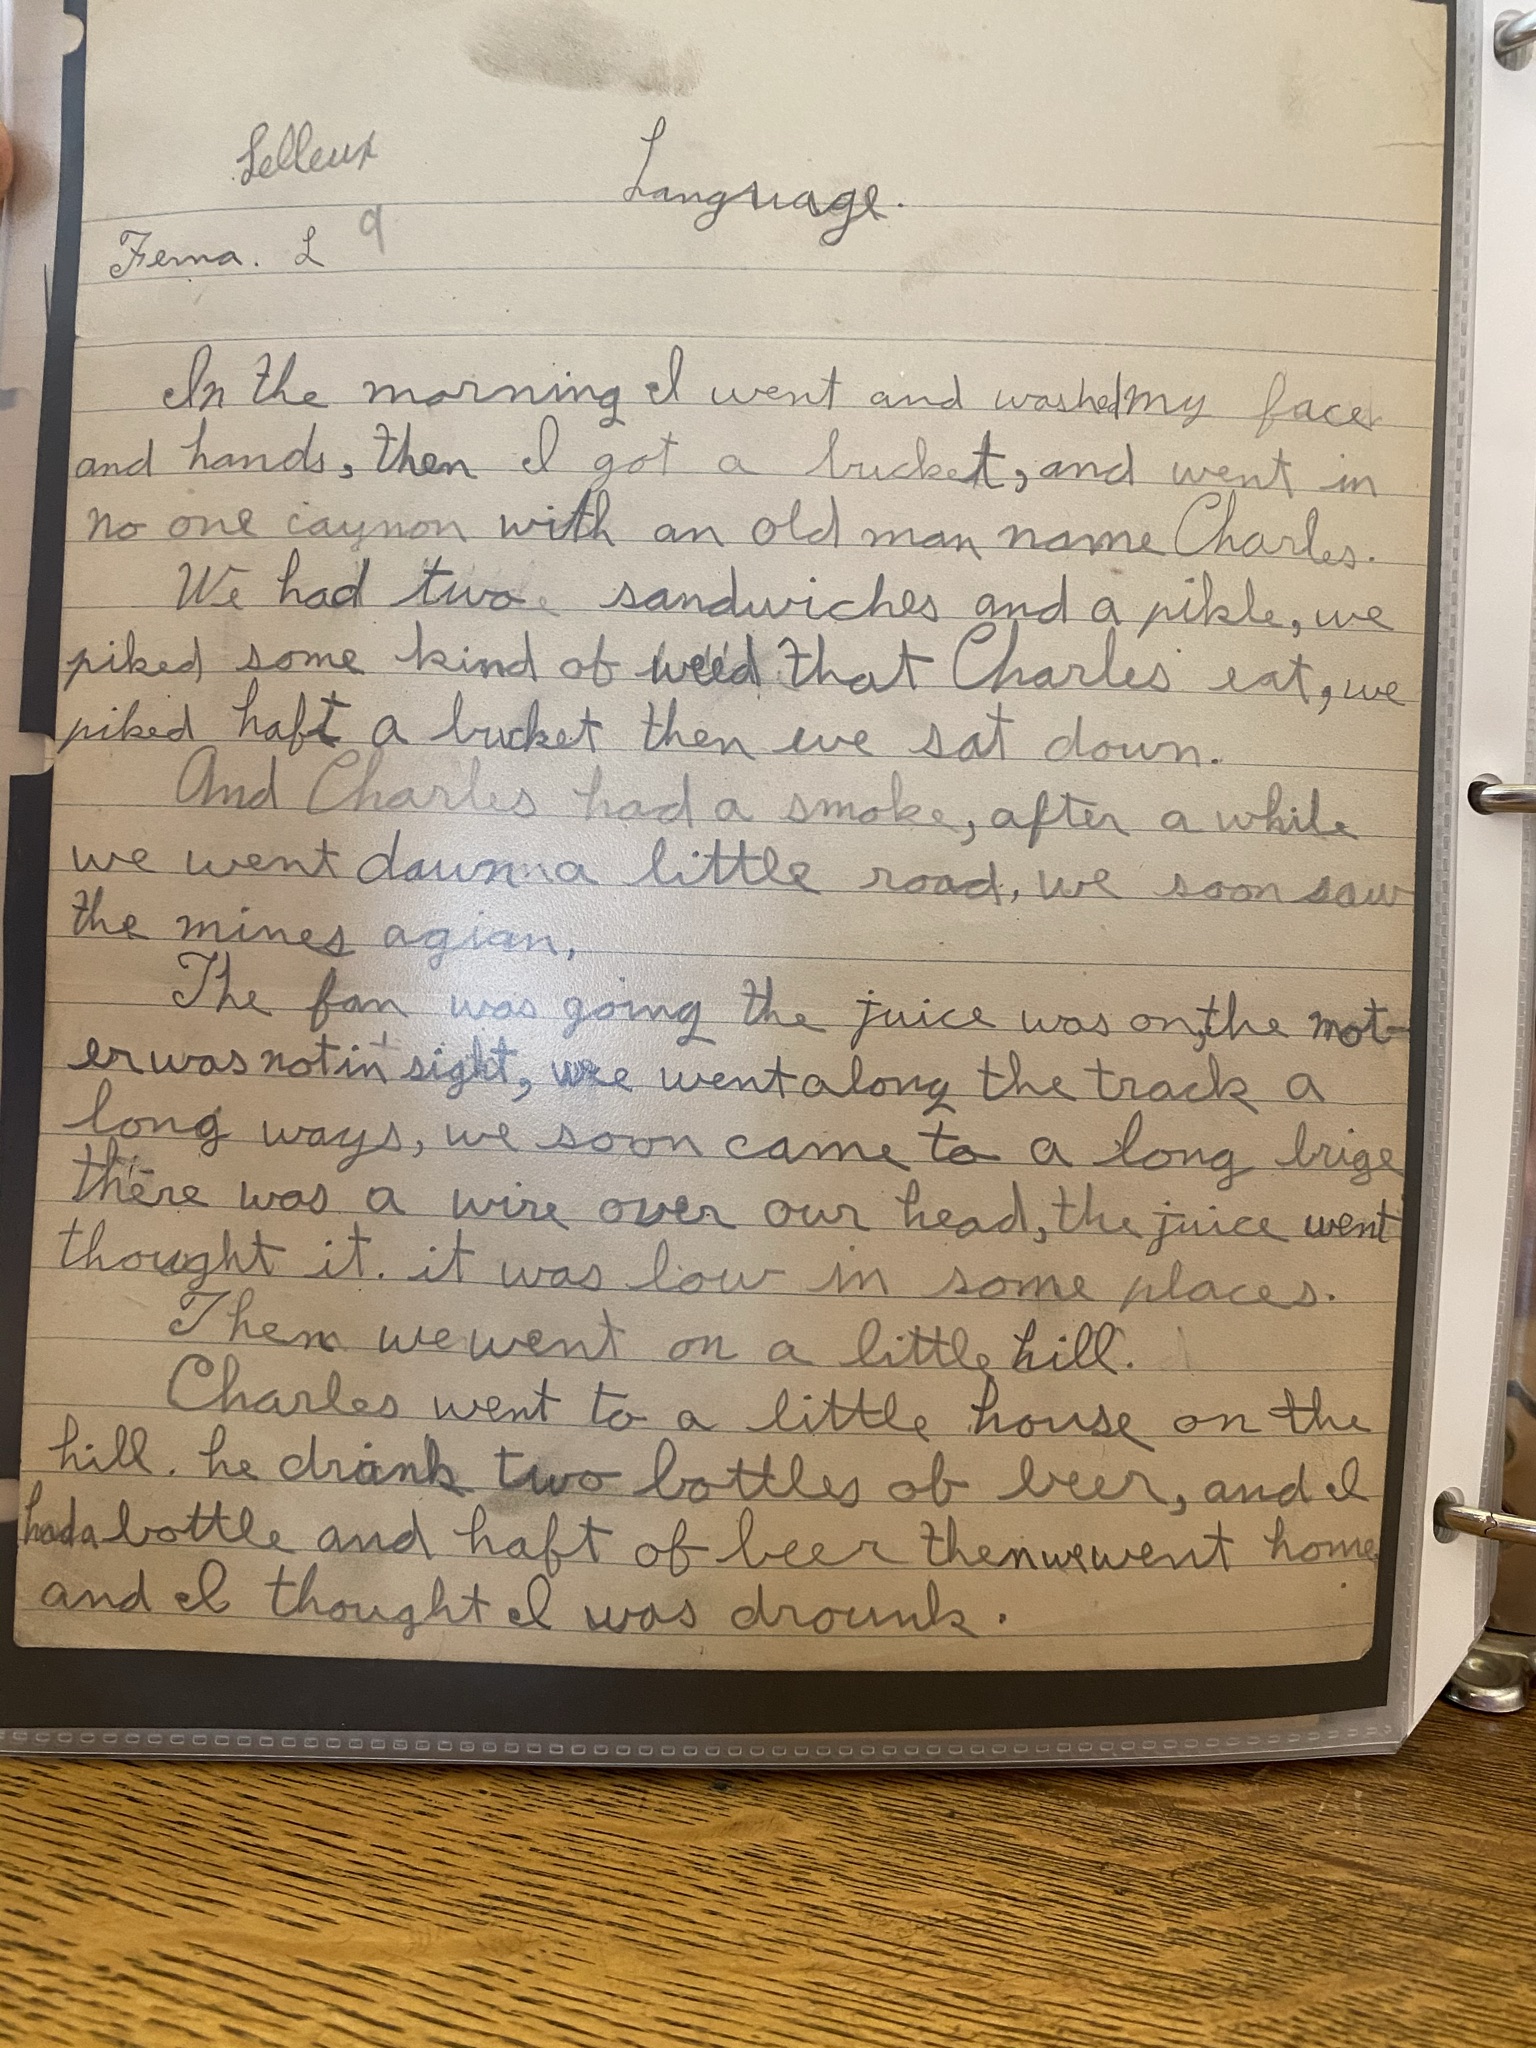 Lelleux
Language.
Ferna. L 9
In the morning I went and washed my face
and hands, then I got a bucket, and went in
no one caynon with an old man name Charles.
We had two sandwiches and a pikle, we
piked some kind of weed that Charles eat, we
piked haft a bucket then we sat down.
And Charles had a smoke, after a while
we went daun a little road, we soon saw
the mines agian,
The fan was going the juice was on, the mot-
er was not in sight, we went along the track a
long ways, we soon came to a long brige
there was a wire over our head, the juice went
thought it. it was low in some places.
Then we went on a little hill.
Charles went to a little house on the
hill. he drank two bottles of beer, and I
had a bottle and haft of beer then we went home
and I thought I was drounk.